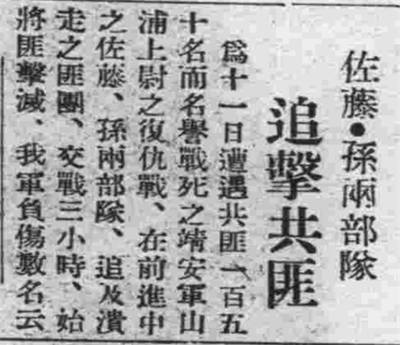 佐藤•孫兩部隊
追擊共匪
爲十一日遭遇共匪一百五
十名而名譽戰死之靖安軍山
浦上尉之復仇戰、在前進中
之佐藤、孫兩部隊、追及潰
走之匪團、交戰三小時、始
將匪擊滅、我軍負傷數名云